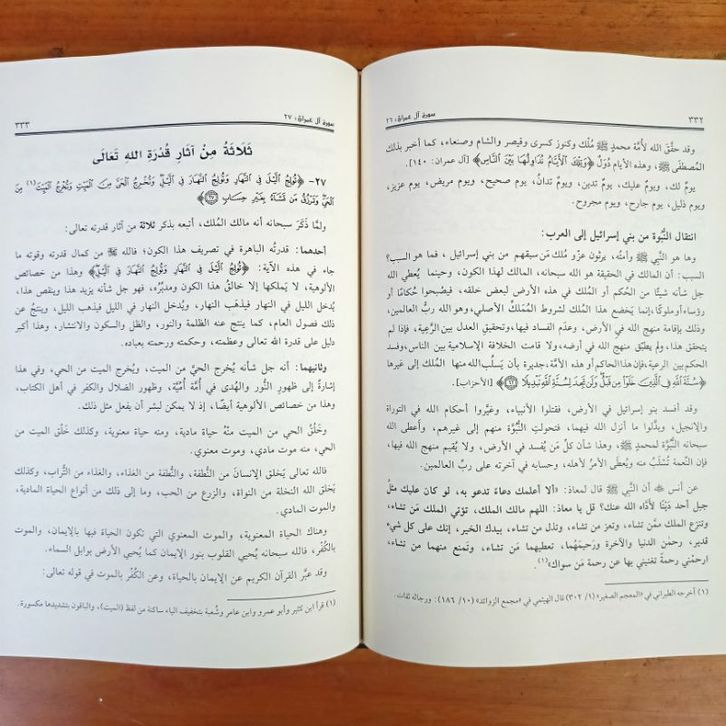 سورة آل عمران: ٢٦
٣٣٢
وقد حقَّق الله لأُمَّة محمدٍ ﷺ مُلْك وكنوز كسرى وقيصر والشام وصنعاء، كما أخبر بذلك
المصطفَى ﷺ، وهذه الأيام دُوَلٌ ﴿وَتِلْكَ ٱلْأَيَّامُ نُدَاوِلُهَا بَيْنَ ٱلنَّاسِ﴾ [آل عمران: ١٤٠].
يومٌ لك، ويومٌ عليك، يومٌ تَدين، ويومٌ تدانُ، يوم صحيح، ويوم مريض، يوم عزيز،
ويوم ذليل، يوم جارح، ويوم مجروح.
انتقال النُّبوَّة من بني إسرائيل إلى العرب:
وها هو النَّبي ﷺ وأمتُه، يرثون عزَّ ومُلك مَن سبقهم من بني إسرائيل، فما هو السبب؟
السبب: أن المالك في الحقيقة هو الله سبحانه، المالك لهذا الكون، وحينما يُعطي الله
جل شأنه شيئًا من الحُكم أو المُلك في هذه الأرض لبعض خلقه، فيصبحوا حُكامًا أو
رؤساء أو ملوكًا، إنما يَخضع هذا المُلك لشروط المُمَلِّك الأصلي، وهو الله ربُّ العالمين،
وذلك بإقامة منهج الله في الأرض، وعدَم الفساد فيها، وتحقيق العدل بين الرَّعية، فإذا لم
يتحقق هذا، ولم يُطبَّق منهج الله في أرضه، ولا قامت الخلافة الإسلامية بين الناس، وفسد
الحكم بين الرعية، فإن هذا الحاكم أو هذه الأمَّة، جديرة بأن يَسلُب الله منها المُلك إلى غيرها
﴿سُنَّةَ ٱللَّهِ فِي ٱلَّذِينَ خَلَوْا۟ مِن قَبْلُ وَلَن تَجِدَ لِسُنَّةِ ٱللَّهِ تَبْدِيلًا ۝٦٢﴾ [الأحزاب].
وقد أفسد بنو إسرائيل في الأرض، فقتلوا الأنبياء، وغيَّروا أحكام الله في التوراة
والإنجيل، وبدَّلوا ما أنزل الله فيهما، فتحولتِ النُّبوَّة منهم إلى غيرهم، وأعطى الله
سبحانه النُّبوَّة لمحمدٍ ﷺ، وهذا شأن كلِّ مَن يُفسد في الأرض، ولا يُقيم منهج الله فيها،
فإن النِّعمة تُسْلَب منه ويُعطَى الأمرُ لأهله، وحسابه في آخرته على ربِّ العالمين.
عن أنس ﷺ أن النَّبي ﷺ قال لمعاذ: «ألا أعلمك دعاءً تدعو به، لو كان عليك مثلُ
جبل أحد دَينًا لأدَّاه الله عنك؟ قل يا معاذ: اللهم مالك الملك، تؤتي الملك مَن تشاء،
وتنزع الملك ممَّن تشاء، وتعز من تشاء، وتذل من تشاء، بيدك الخير، إنك على كل شيءٍ
قدير، رحمٰن الدنيا والآخرة ورحيمَهُما، تعطيهما مَن تشاء، وتَمنع منهما من تشاء،
ارحمْني رحمةً تغنيني بها عن رحمة مَن سواك»(١).
(١) أخرجه الطبراني في «المعجم الصغير» (١/ ٣٠٢) قال الهيثمي في «مجمع الزوائد» (١٠/ ١٨٦): ورجاله ثقات.
سورة آل عمران: ٢٧
٣٣٣
ثَلَاثَةٌ مِنْ آثَارِ قُدْرَةِ اللهِ تَعَالَى
٢٧- ﴿تُولِجُ ٱلَّيْلَ فِي ٱلنَّهَارِ وَتُولِجُ ٱلنَّهَارَ فِي ٱلَّيْلِ وَتُخْرِجُ ٱلْحَيَّ مِنَ ٱلْمَيِّتِ وَتُخْرِجُ ٱلْمَيِّتَ(١) مِنَ
ٱلْحَيِّ وَتَرْزُقُ مَن تَشَآءُ بِغَيْرِ حِسَابٍ ۝٢٧﴾
ولمَّا ذَكَرَ سبحانه أنه مالك المُلك، أتبعه بذكر ثلاثة من آثار قدرته تعالى:
أحدهما: قدرتُه الباهرة في تصريف هذا الكون؛ فالله ﷻ من كمال قدرته وقوته ما
جاء في هذه الآية: ﴿تُولِجُ ٱلَّيْلَ فِي ٱلنَّهَارِ وَتُولِجُ ٱلنَّهَارَ فِي ٱلَّيْلِ﴾ وهذا من خصائص
الألوهية، لا يَملكها إلا خالقُ هذا الكون ومدبِّرُه، فهو جل شأنه يزيد هذا وينقص هذا،
يُدخل الليل في النهار فيذهَب النهار، ويُدخل النهار في الليل فيذهب الليل، وينتجُ عن
ذلك فصول العام، كما ينتج عنه الظلمة والنور، والظل والسكون والانتشار، وهذا أكبر
دليل على قدرة الله تعالى وعظمته، وحكمته ورحمته بعباده.
وثانيهما: أنه جل شأنه يُخرج الحيَّ من الميت، ويُخرج الميت من الحي، وفي هذا
إشارةٌ إلى ظهورِ النُّور والهُدى في أُمَّة أُمِّيَّة، وظهور الضلال والكفر في أهل الكتاب،
وهذا من خصائص الألوهية أيضًا، إذ لا يمكن لبشر أن يفعل مثل ذلك.
وخَلْقُ الحي من الميت منْهُ حياة مادية، ومنه حياة معنوية، وكذلك خَلْق الميت من
الحي، منه موت مادي، وموت معنوي.
فالله تعالى يَخلق الإنسان من النُّطفة، والنُّطفة من الغذاء، والغذاء من التُّراب، وكذلك
يَخلق الله النخلة من النواة، والزرع من الحب، وما إلى ذلك من أنواع الحياة المادية،
والموت المادي.
وهناك الحياة المعنوية، والموت المعنوي التي تكون الحياة فيها بالإيمان، والموت
بالكُفْر، فالله سبحانه يُحيي القلوب بنور الإيمان كما يُحيي الأرض بوابل السماء.
وقد عبَّر القرآن الكريم عن الإيمان بالحياة، وعن الكُفْر بالموت في قوله تعالى:
(١) قرأ ابن كثير وأبو عمرو وابن عامر وشُعبة بتخفيف الياء ساكنة من لفظ (الميت)، والباقون بتشديدها مكسورة.